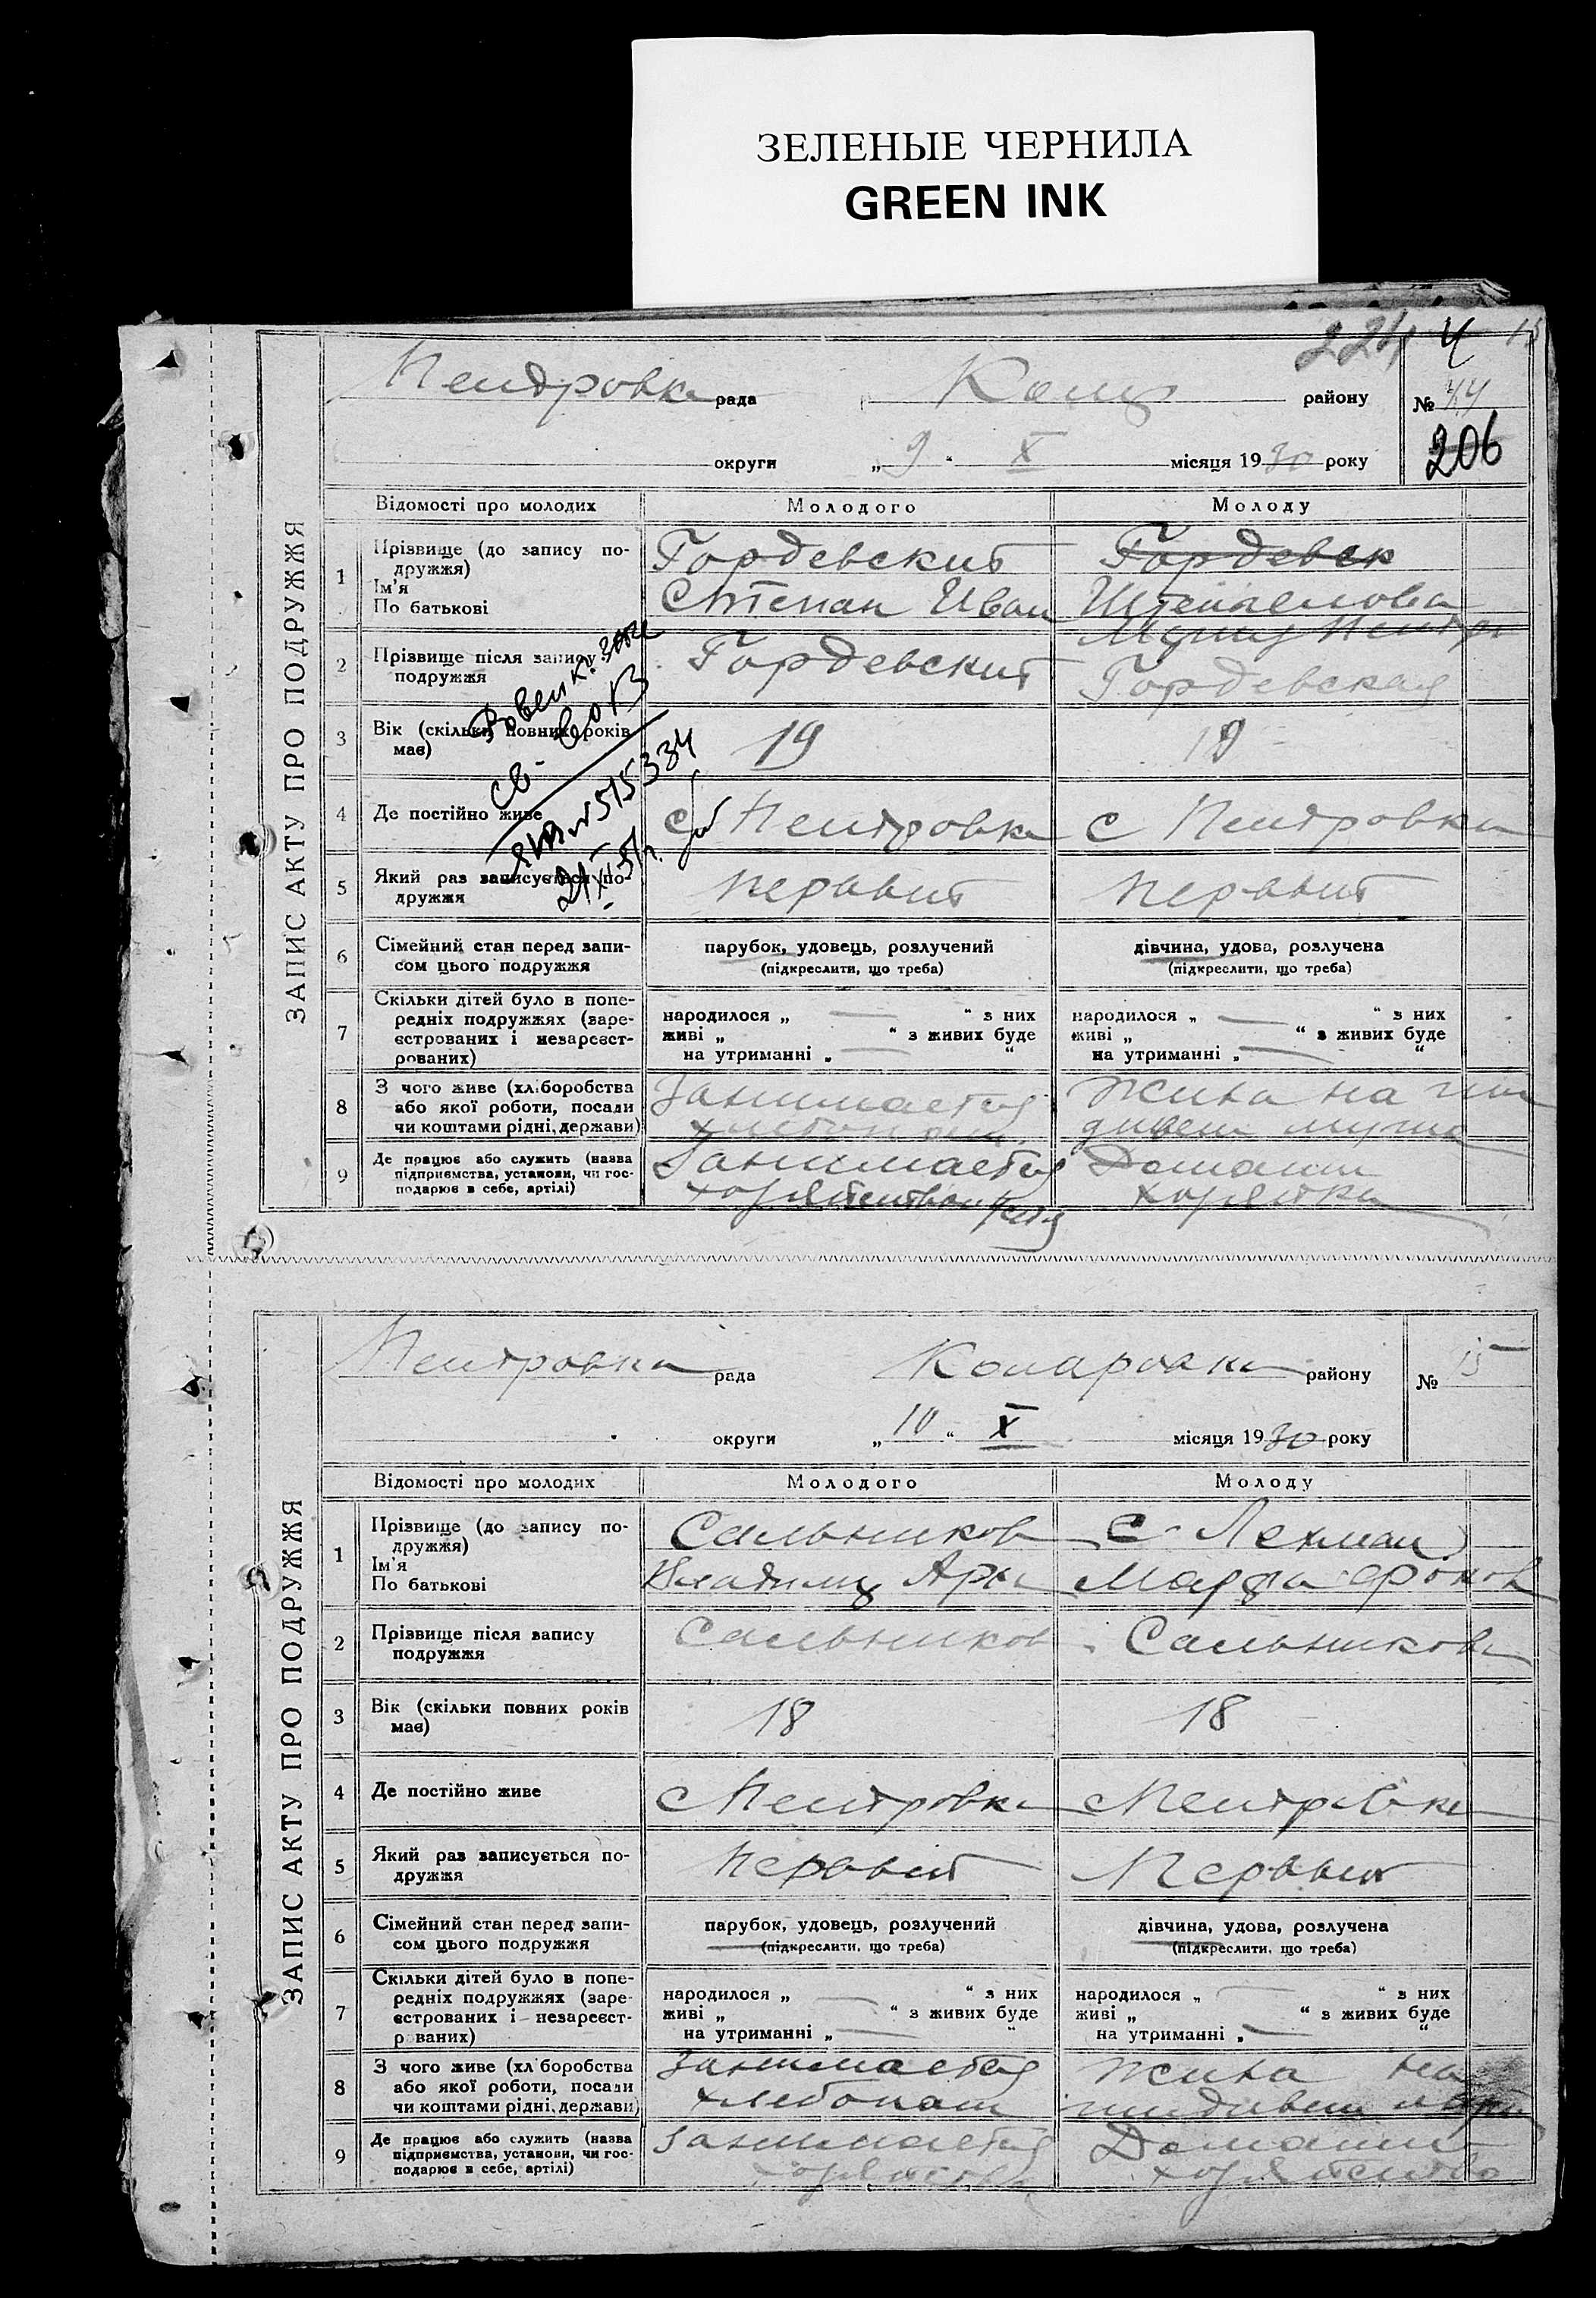 ЗЕЛЕНЫЕ ЧЕРНИЛА
GREEN INK
224
ЗАПИС АКТУ ПРО ПОДРУЖЖЯ
Петровка рада Кома района № 44
округи „9“ X місяця 1930 року
206
Відомості про молодих Молодого Молоду
1 Прізвище (до запису подружжя) Гордевский Гордевск
Ім'я
По батькові Степан Иван
2 Прізвище після запису подружжя Гордевский Гордевская
3 Вік (скільки повних років має) 19 19
4 Де постійно живе с Петровка с Петровка
№ 515334
5 Який раз записується подружжя первый первый
6 Сімейний стан перед записом цього подружжя парубок, удовець, розлучений дівчина, удова, розлучена
(підкреслити, що треба) (підкреслити, що треба)
7 Скільки дітей було в попередніх подружжях (зареєстрованих і незареєстрованих)
народилося „ “ з них народилося „ “ з них
живі „ “ з живих буде живі „ “ з живих буде
на утриманні „ “ на утриманні „ “
8 З чого живе (хліборобства або якої роботи, посади чи коштами рідні, держави) Занимается Жила на
9 Де працює або служить (назва підприємства, установи, чи господарює в себе, артілі) Занимается Домашн
ЗАПИС АКТУ ПРО ПОДРУЖЖЯ
Петровка рада Комаровка району № 15
округи „10“ X місяця 1930 року
Відомості про молодих Молодого Молоду
1 Прізвище (до запису подружжя) Сальников Лехман
Ім'я
По батькові Владимир
2 Прізвище після запису подружжя Сальников Сальникова
3 Вік (скільки повних років має) 18 18
4 Де постійно живе с Петровка с Петровка
5 Який раз записується подружжя первый Первый
6 Сімейний стан перед записом цього подружжя парубок, удовець, розлучений дівчина, удова, розлучена
(підкреслити, що треба) (підкреслити, що треба)
7 Скільки дітей було в попередніх подружжях (зареєстрованих і незареєстрованих)
народилося „ “ з них народилося „ “ з них
живі „ “ з живих буде живі „ “ з живих буде
на утриманні „ “ на утриманні „ “
8 З чого живе (хліборобства або якої роботи, посади чи коштами рідні, держави) Занимается хлебопаш Жила на
9 Де працює або служить (назва підприємства, установи, чи господарює в себе, артілі) Занимается Домашн